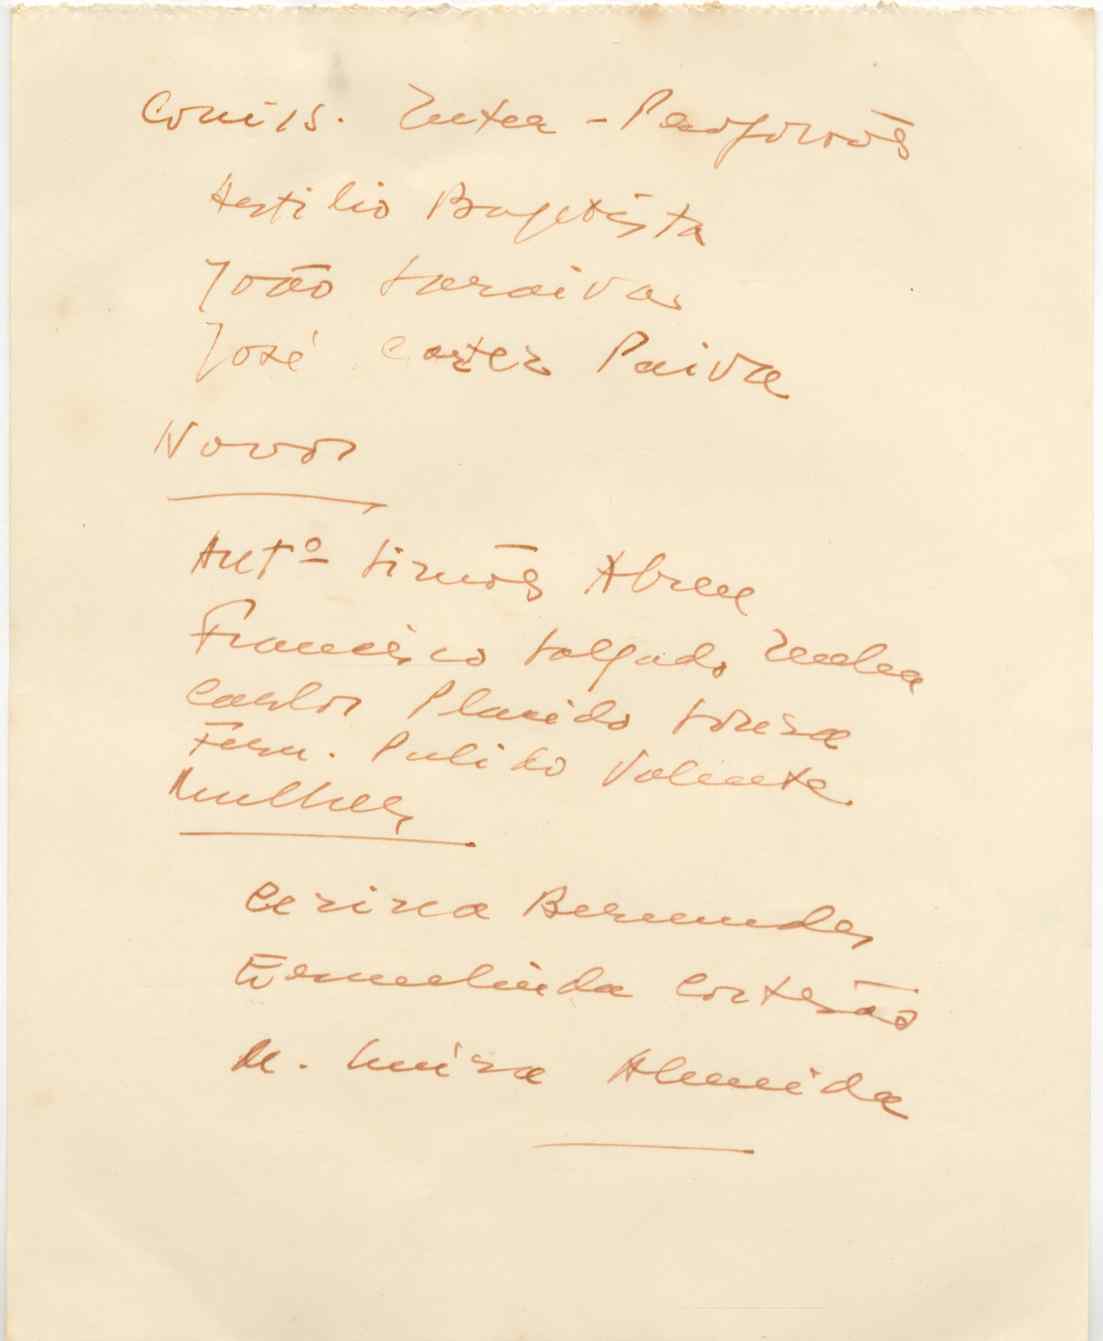 Comis. Inter-Profissões
Hertilio Baptista
João Saraiva
José Cortez Paiva
Novos
Antº Simões Abreu
Francisco Salgado Zenha
Carlos Placido Sousa
Fern. Pulido Valente
Mulheres
Cesina Bermudes
Esmeralinda Cortesão
M. Luisa Almeida